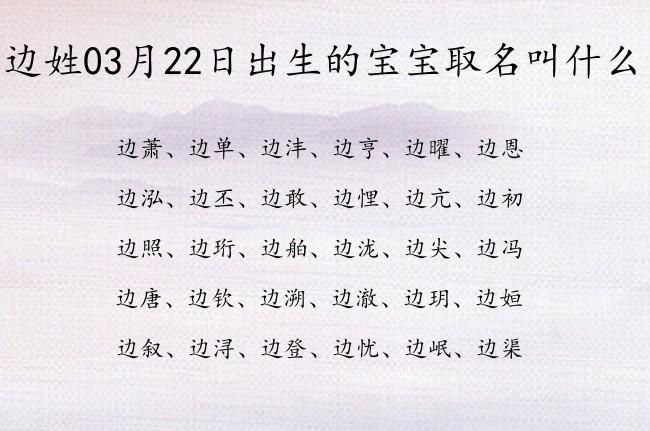 边姓03月22日出生的宝宝取名叫什么
边萧、边单、边沣、边亨、边曜、边恩
边泓、边丕、边敢、边悝、边亢、边初
边照、边珩、边舶、边泷、边尖、边冯
边唐、边钦、边溯、边澈、边玥、边姮
边叙、边浔、边登、边忧、边岷、边渠